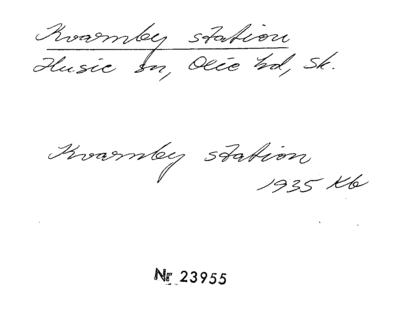 Kvarnby station
Husie sn, Oxie hd, Sk.
Kvarnby station
1935 Kb
Nr 23955